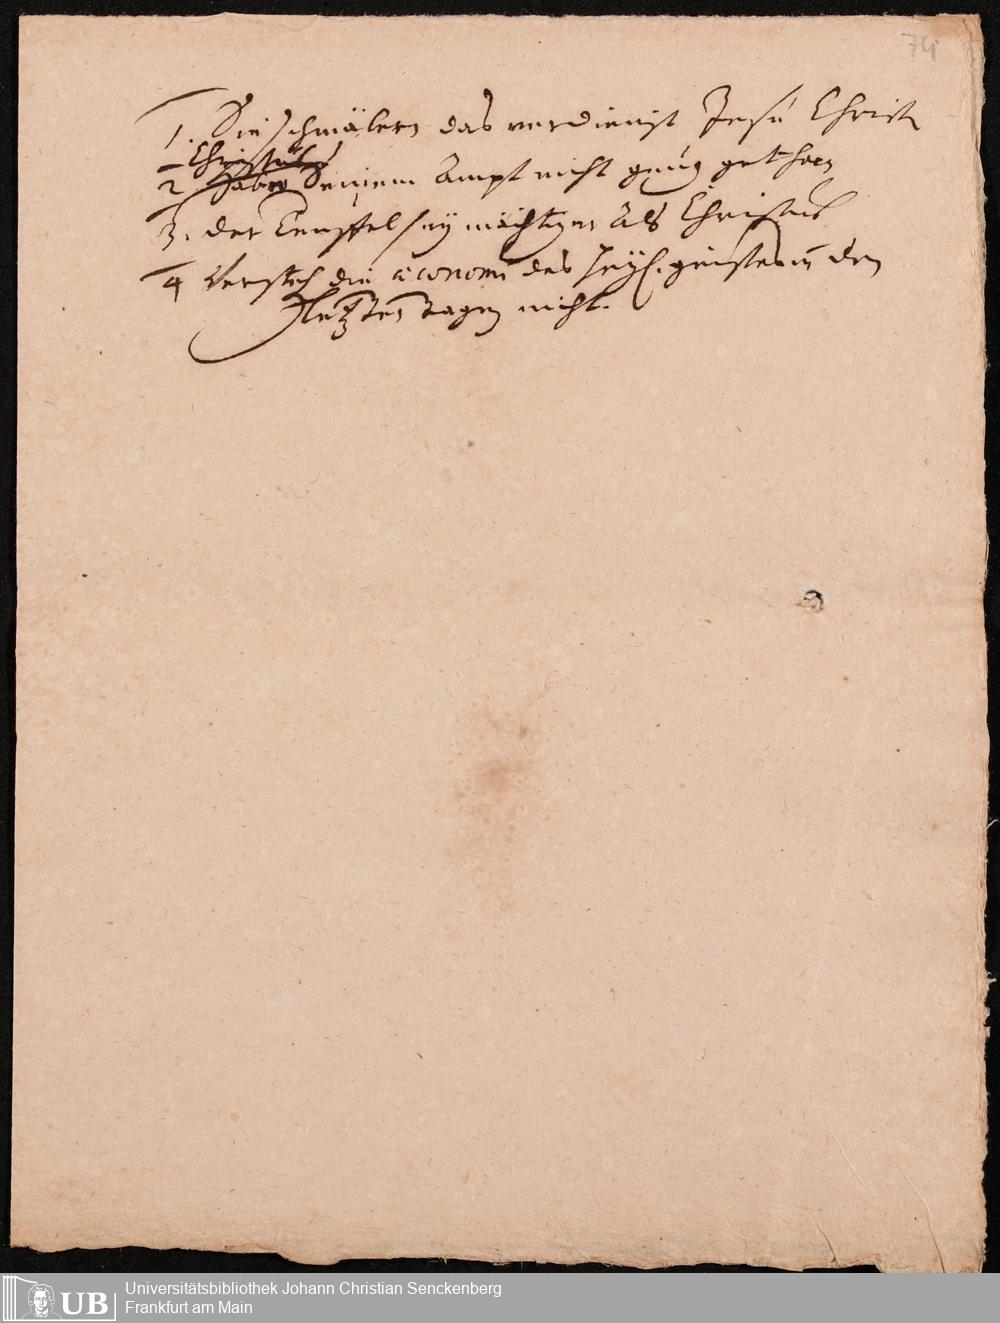 74
1. Sie schmälern das verdienst Jesu Christi
Christus
2 habe Seinem Ampt nicht genug gethan
3. der Teuffel sey mächtiger als Christus
4 Versteh die oiconomi des Heyl. geistes in den
letzten tagen nicht.
Universitätsbibliothek Johann Christian Senckenberg
Frankfurt am Main
UB